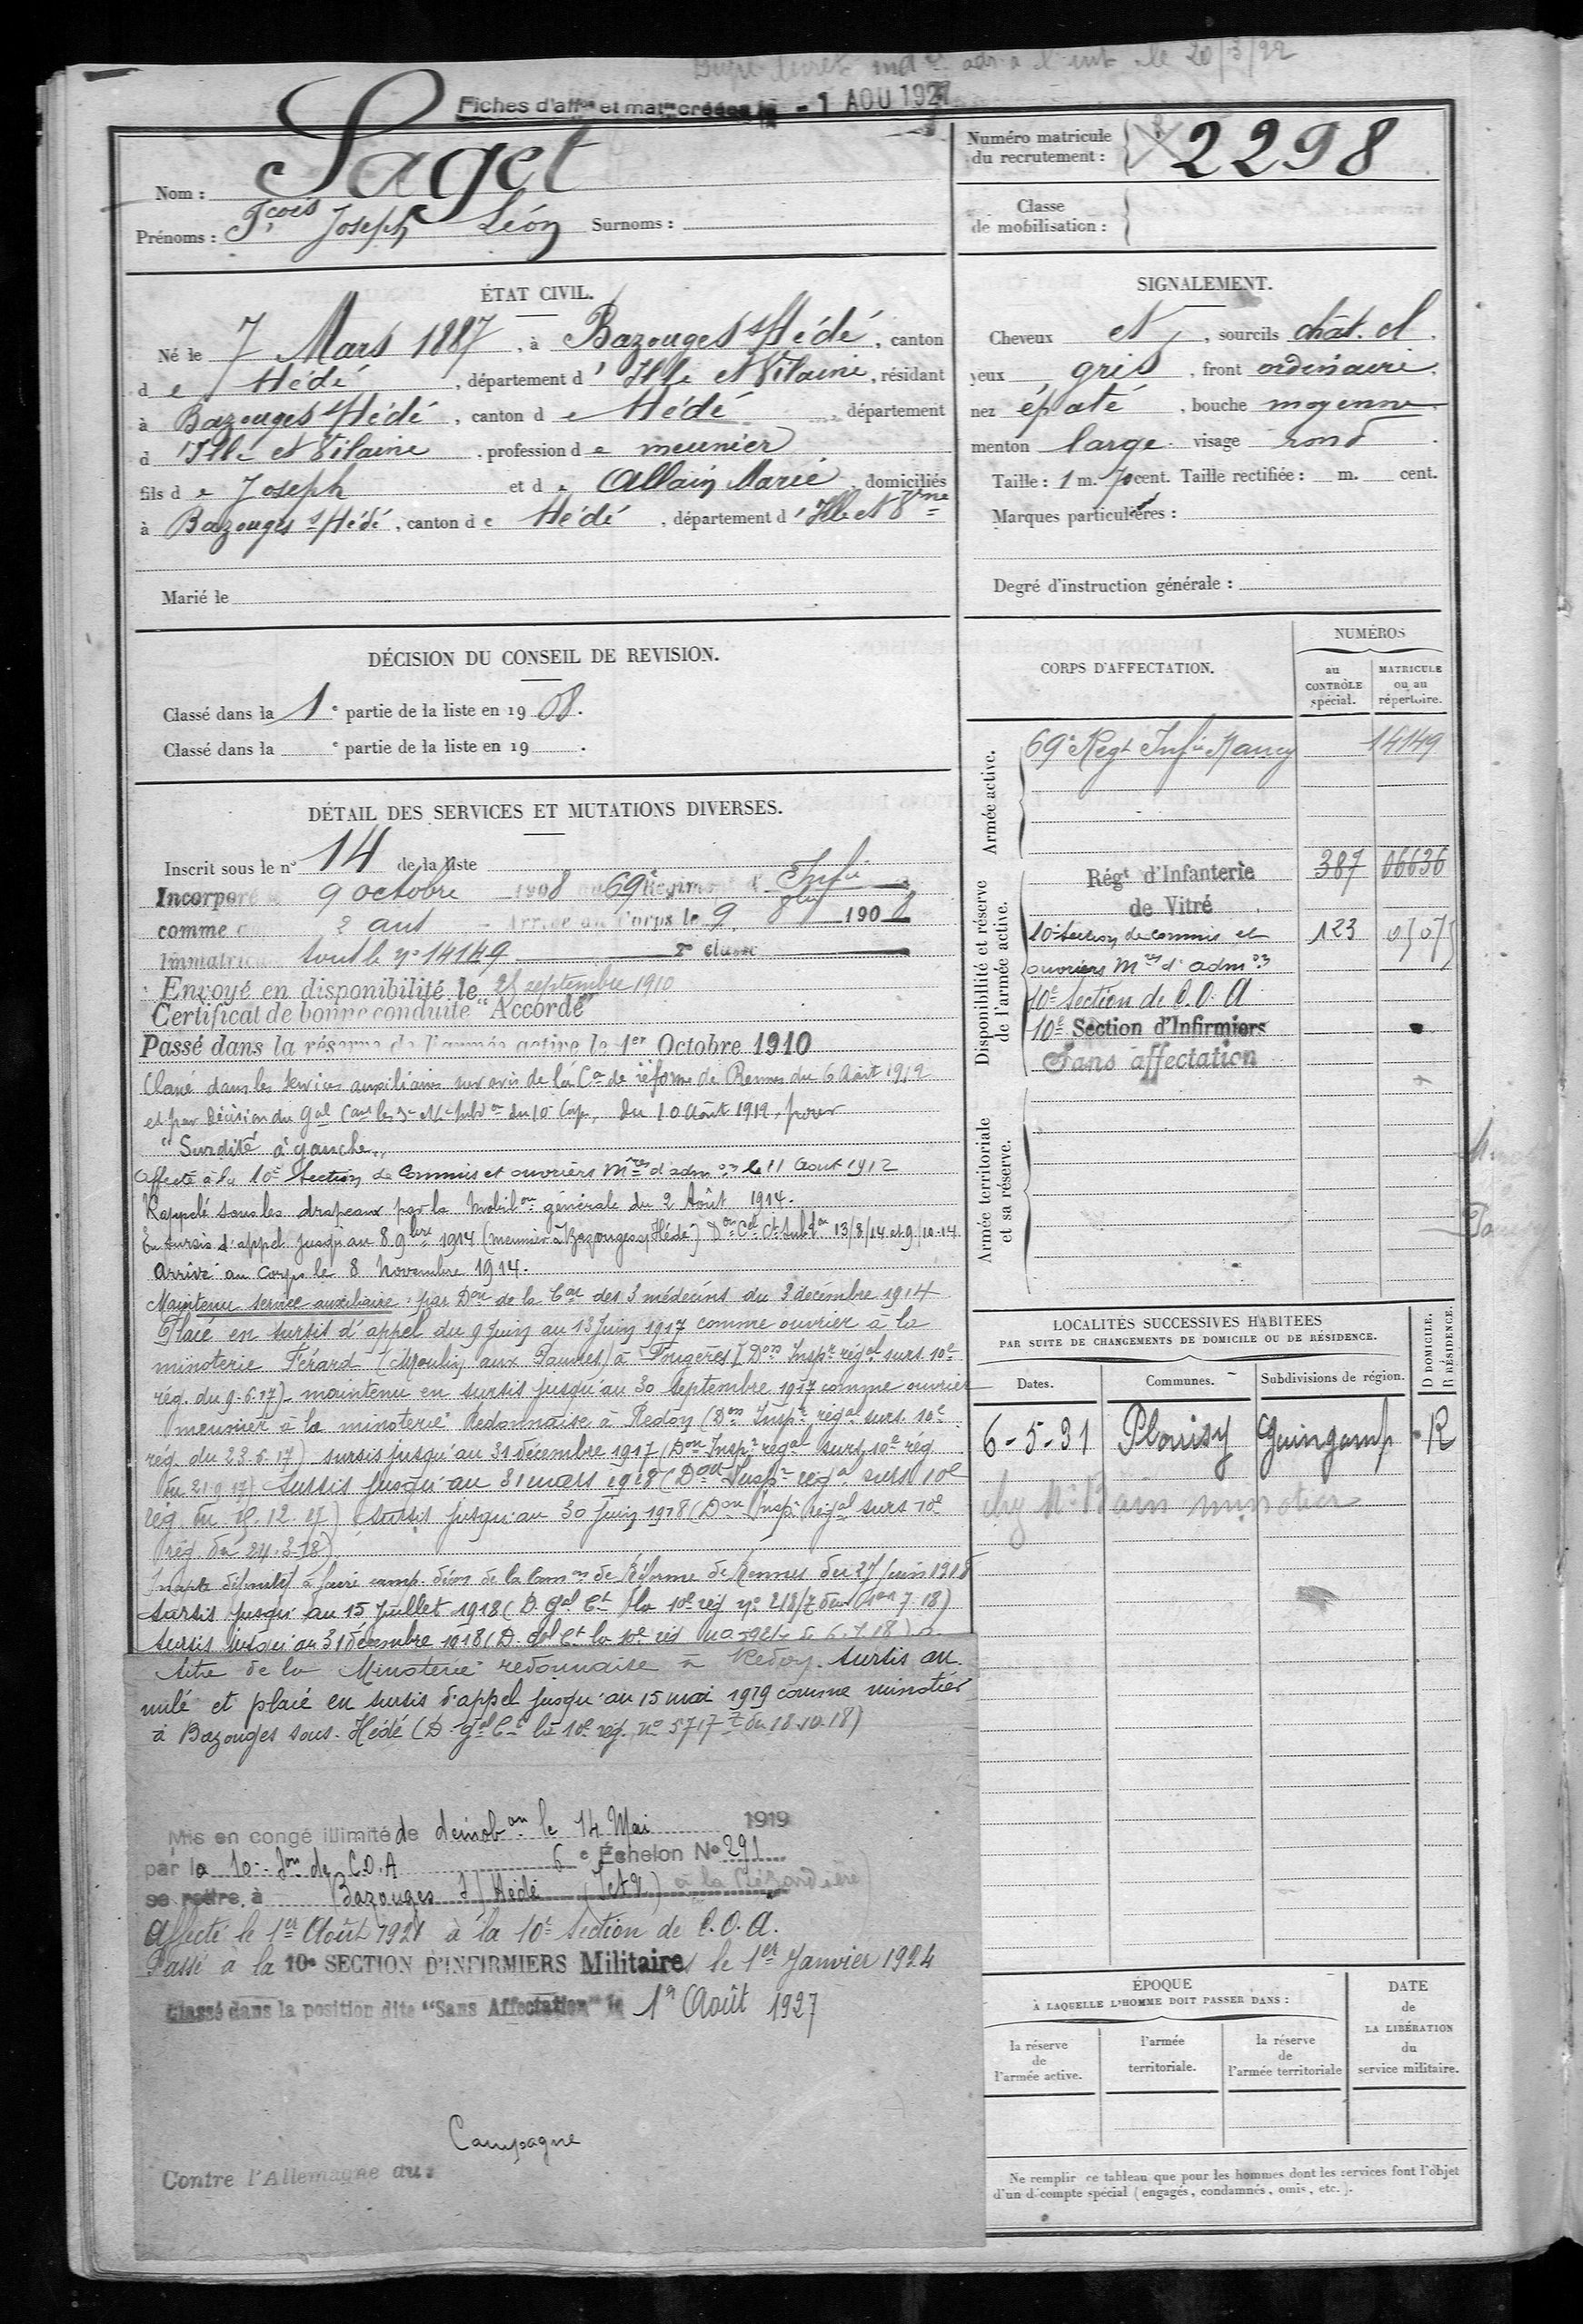 livret adr. à l'int. le 20/3/22
Fiches d'aff.on et mat.on créées le - 1 AOU 1927
Nom : Saget
Prénoms : Fçois Joseph Léon Surnoms :
Numéro matricule du recrutement : 2298
Classe de mobilisation :
ÉTAT CIVIL.
Né le 7 Mars 1887, à Bazouges s/Hédé, canton
de Hédé, département d'Ille et Vilaine, résidant
à Bazouges s/Hédé, canton de Hédé, département
d'Ille et Vilaine, profession de meunier
fils de Joseph et de Allain Marie, domiciliés
à Bazouges s/Hédé, canton de Hédé, département d'Ille et Vne
Marié le
SIGNALEMENT.
Cheveux et, sourcils chât. cl.
yeux gris, front ordinaire,
nez épaté, bouche moyenne,
menton large visage rond.
Taille : 1 m. 70 cent. Taille rectifiée : m. cent.
Marques particulières :
Degré d'instruction générale :
DÉCISION DU CONSEIL DE REVISION.
Classé dans la 1e partie de la liste en 1908.
Classé dans la e partie de la liste en 19 .
DÉTAIL DES SERVICES ET MUTATIONS DIVERSES.
Inscrit sous le n° 14 de la liste
Incorporé 9 octobre 1908 au 69e Régiment d' Infie
comme 2 ans Arrivé au Corps le 9 8bre 1908
Immatriculé sous le n° 14149 2e classe
Envoyé en disponibilité le 25 septembre 1910
Certificat de bonne conduite "Accordé"
Passé dans la réserve de l'armée active le 1er Octobre 1910
Classé dans les services auxiliaires sur avis de la Con de réforme de Rennes du 6 Août 1912
et par décision du Gal Cant les 3e et 4e Subdon du 10e Corps, du 10 Août 1912, pour
"Surdité à gauche"
affecté à la 10e Section de Commis et ouvriers Mres d'admon le 11 Août 1912
Rappelé sous les drapeaux par la Mobilon générale du 2 Août 1914.
En sursis d'appel jusqu'au 8 9bre 1914 (meunier à Bazouges s/Hédé) Don Cel Ct Subdon 13/8/14 et 9/10-14
Arrivé au Corps le 8 Novembre 1914.
Maintenu service auxiliaire par Don de la Con des 3 médecins du 3 décembre 1914
Placé en sursis d'appel du 9 Juin au 13 Juin 1917 comme ouvrier à la
minoterie Férard (Moulin aux Pauvres) à Fougères (Don Inspr régal surs. 10e
rég. du 9-6-17) maintenu en sursis jusqu'au 30 septembre 1917 comme ouvrier
meunier à la minoterie Redonnaise à Redon (Don Inspr régal surs. 10e
rég. du 23.6.17) sursis jusqu'au 31 décembre 1917 (Don Inspr régal surs. 10e rég
du 21.9.17) Sursis jusqu'au 31 mars 1918 (Don Inspr régal surs 10e
rég. du 15.12.17) sursis jusqu'au 30 Juin 1918 (Don Inspr régal surs 10e
rég. du 24.3.18)
Inapte définitif à faire camp. déon de la Comon de Réforme de Rennes du 27 Juin 1918
sursis jusqu'au 15 Juillet 1918 (D. Gal Ct la 10e rég n° 218/7 du 1er 7.18)
sursis jusqu'au 31 décembre 1918 (D. Gal Ct la 10e rég
titre de la Minoterie redonnaise à Redon. sursis an
nulé et placé en sursis d'appel jusqu'au 15 mai 1919 comme minotier
à Bazouges sous-Hédé (D. Gal Ct la 10e rég. n° 5717 7 du 18.10.18)
Mis en congé illimité de démobon le 14 Mai 1919
par la 10e Son de C.O.A 6e Échelon N° 291
se retire à Bazouges s/ Hédé (I et V)
Affecté le 1er Août 1921 à la 10e section de C.O.A.
Passé à la 10e SECTION D'INFIRMIERS Militaires le 1er Janvier 1924
Classé dans la position dite "Sans Affectation" le 1er Août 1927
Campagne
Contre l'Allemagne du :
CORPS D'AFFECTATION.
NUMÉROS
au CONTRÔLE spécial.
MATRICULE ou au répertoire.
Armée active.
69e Regt Infie Nancy 14149
Disponibilité et réserve de l'armée active.
Régt d'Infanterie 387 06636
de Vitré
10e section de commis et 123
ouvriers Mres d'admon
10e Section de C.O.A
10e Section d'Infirmiers
Sans affectation
Armée territoriale et sa réserve.
LOCALITÉS SUCCESSIVES HABITÉES
PAR SUITE DE CHANGEMENTS DE DOMICILE OU DE RÉSIDENCE.
D DOMICILE. R RÉSIDENCE.
Dates. Communes. Subdivisions de région.
6-5-31 Plouisy Guingamp R
chez Mr minotier
ÉPOQUE
À LAQUELLE L'HOMME DOIT PASSER DANS :
la réserve de l'armée active.
l'armée territoriale.
la réserve de l'armée territoriale
DATE de LA LIBÉRATION du service militaire.
Ne remplir ce tableau que pour les hommes dont les services font l'objet
d'un décompte spécial (engagés, condamnés, omis, etc.).